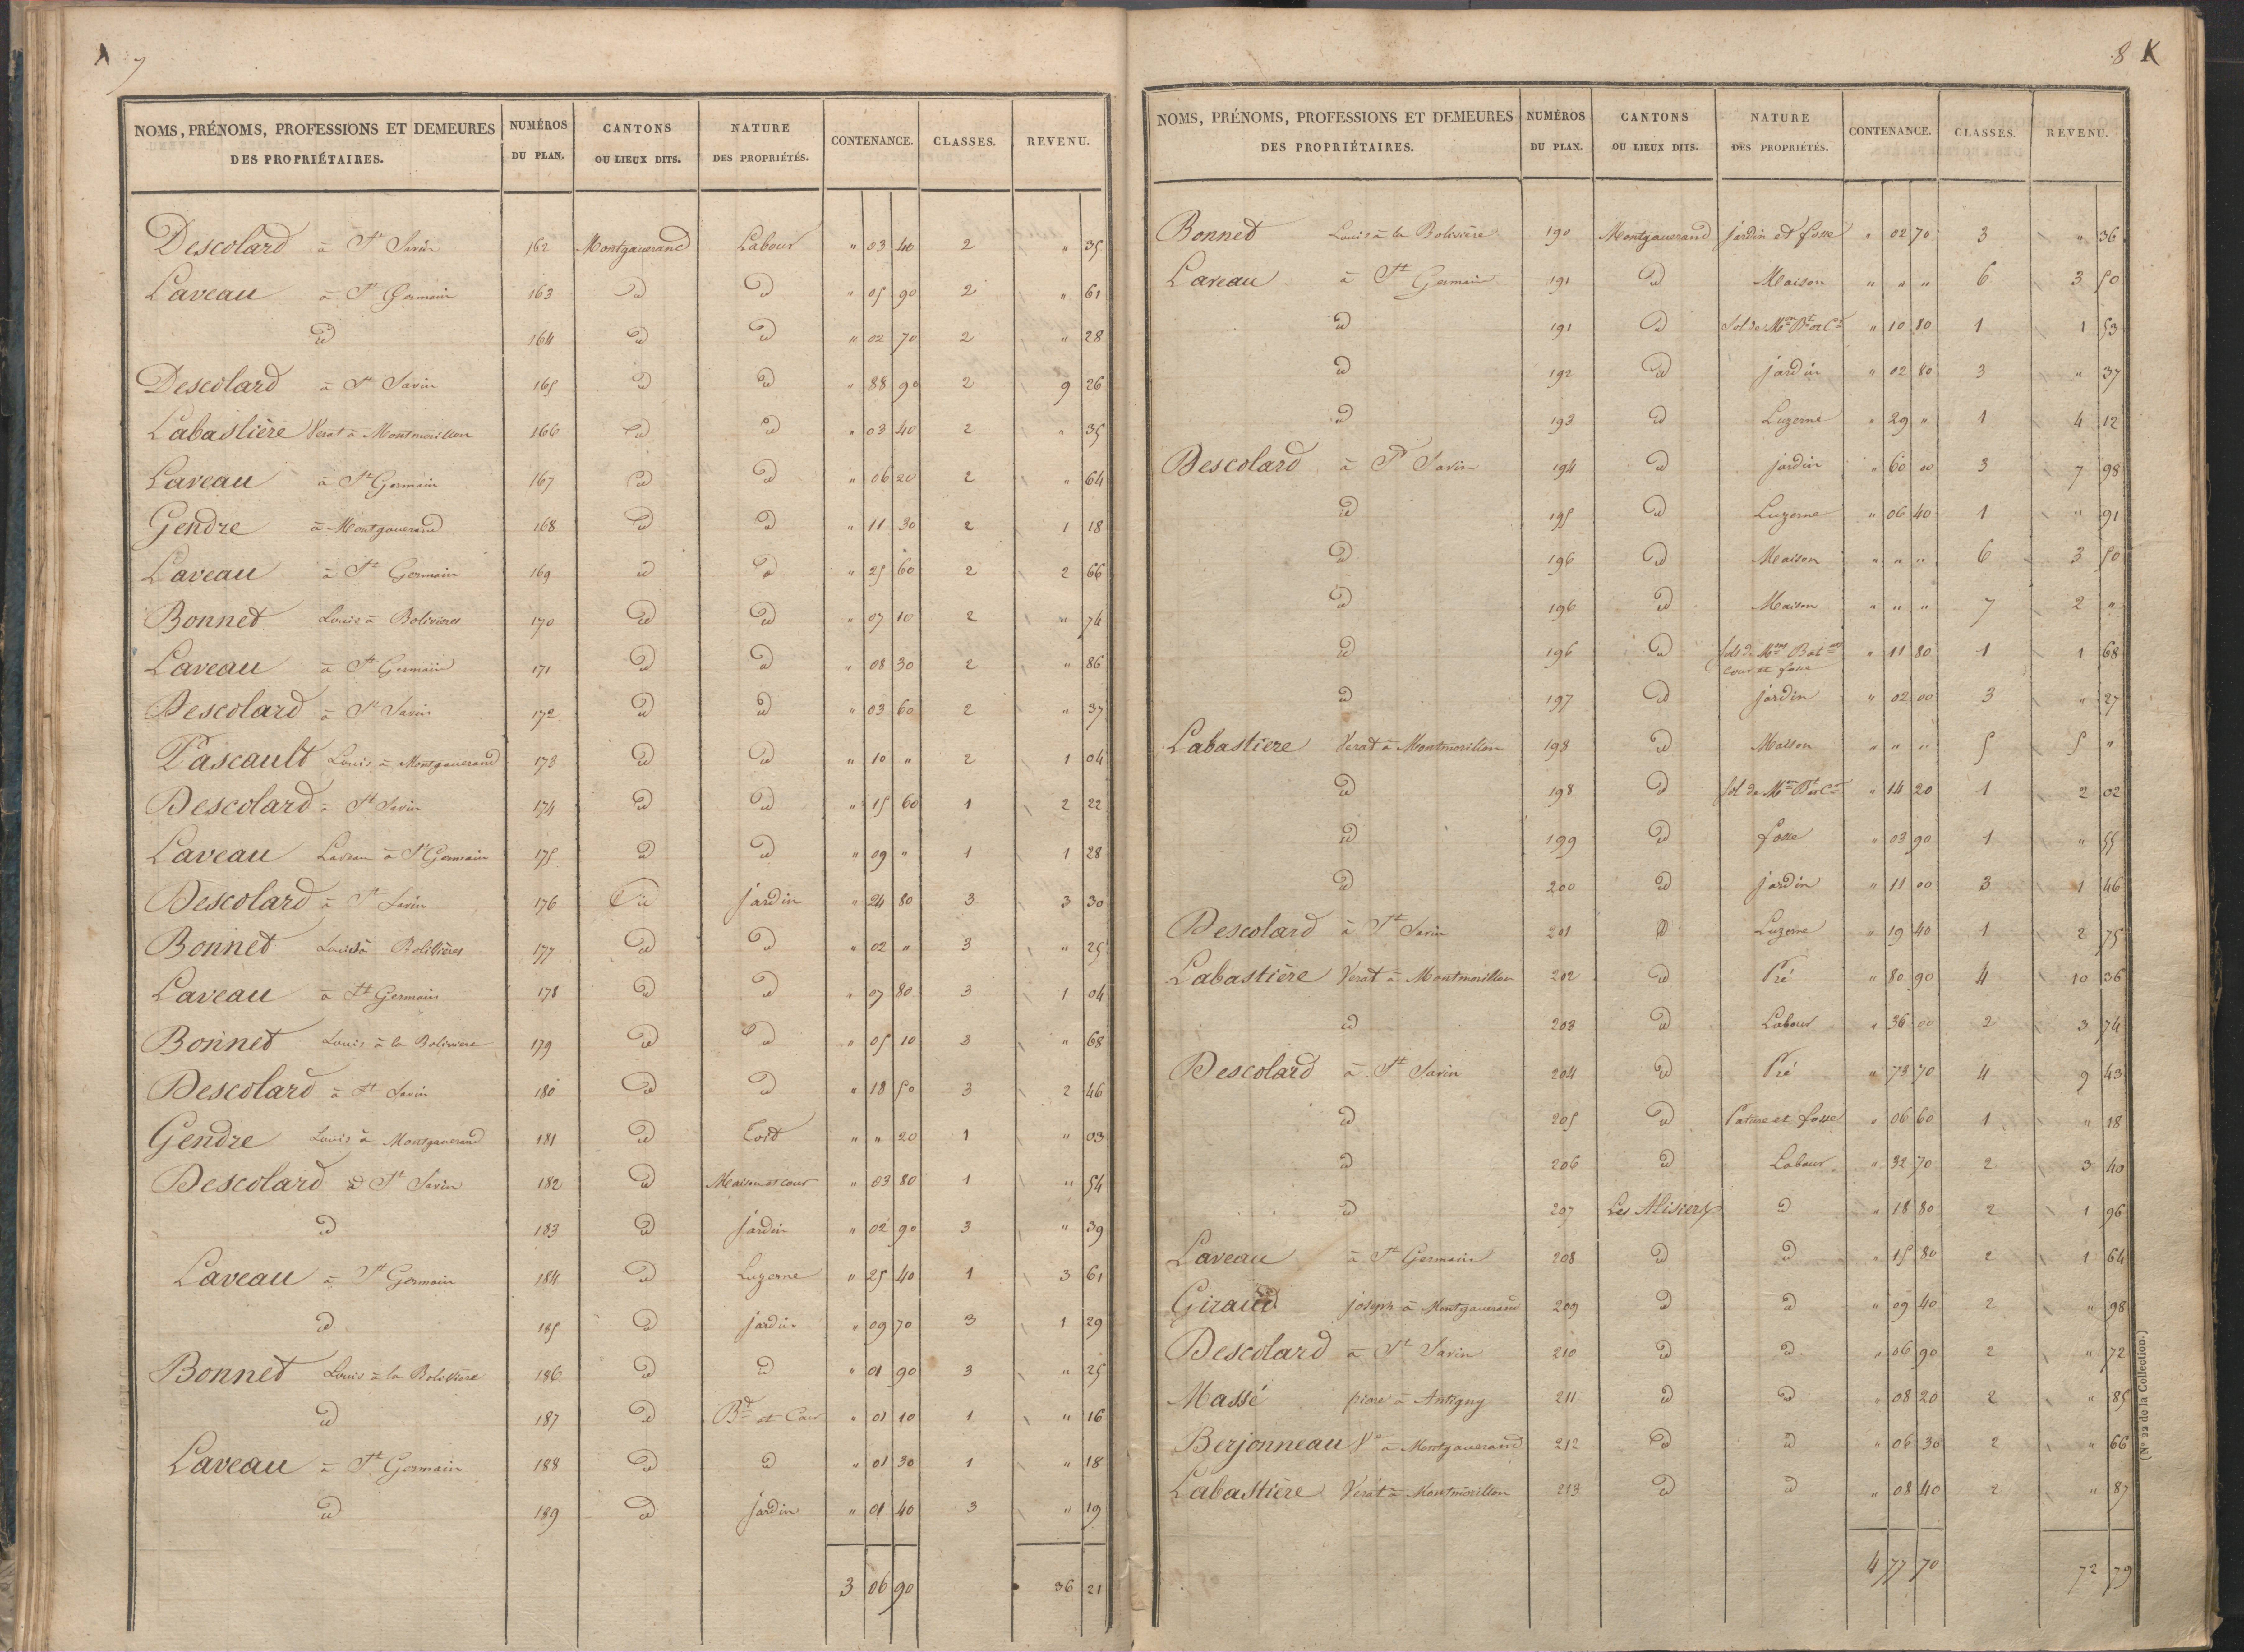 7
NOMS, PRÉNOMS, PROFESSIONS ET DEMEURES DES PROPRIÉTAIRES. NUMÉROS DU PLAN. CANTONS OU LIEUX DITS. NATURE DES PROPRIÉTÉS. CONTENANCE. CLASSES. REVENU.
Descolard à St Savin 162 Montgauerand Labour " 03 40 2 " 35
Laveau à St Germain 163 id id " 05 90 2 " 61
id 164 id id " 02 70 2 " 28
Descolard à St Savin 165 id id " 88 90 2 9 26
Labastière Verat à Montmorillon 166 id id " 03 40 2 " 35
Laveau à St Germain 167 id id " 06 20 2 " 64
Gendre à Montgauerand 168 id id " 11 30 2 1 18
Laveau à St Germain 169 id id " 25 60 2 2 66
Bonnet Louis à Bolivieres 170 id id " 07 10 2 " 74
Laveau à St Germain 171 id id " 08 30 2 " 86
Descolard à St Savin 172 id id " 03 60 2 " 37
Pascault Louis à Montgauerand 173 id id " 10 " 2 1 04
Descolard à St Savin 174 id id " 15 60 1 2 22
Laveau Laveau à St Germain 175 id id " 09 " 1 1 28
Descolard à St Savin 176 id jardin " 24 80 3 3 30
Bonnet Louis à Bolivières 177 id id " 02 " 3 " 25
Laveau à St Germain 178 id id " 07 80 3 1 04
Bonnet Louis à la Boliviere 179 id id " 05 10 3 " 68
Descolard à St Savin 180 id id " 18 50 3 2 46
Gendre Louis à Montgauerand 181 id Toit " " 20 1 " 03
Descolard à St Savin 182 id Maison et cour " 03 80 1 " 54
id 183 id jardin " 02 90 3 " 39
Laveau à St Germain 184 id Luzerne " 25 40 1 3 61
id 185 id jardin " 09 70 3 1 29
Bonnet Louis à la Bolivière 186 id id " 01 90 3 " 25
id 187 id Bt et Cour " 01 10 1 " 16
Laveau à St Germain 188 id id " 01 30 1 " 18
id 189 id jardin " 01 40 3 " 19
3 06 90 36 21
8 K
NOMS, PRÉNOMS, PROFESSIONS ET DEMEURES DES PROPRIÉTAIRES. NUMÉROS DU PLAN. CANTONS OU LIEUX DITS. NATURE DES PROPRIÉTÉS. CONTENANCE. CLASSES. REVENU.
Bonnet Louis à la Bolivière 190 Montgauerand jardin et fosse " 02 70 3 " 36
Laveau à St Germain 191 id Maison " " " 6 3 50
id 191 id Sol de Mon Bt et Cr " 10 80 1 1 53
id 192 id jardin " 02 80 3 " 37
id 193 id Luzerne " 29 " 1 4 12
Descolard à St Savin 194 id jardin " 60 00 3 7 98
id 195 id Luzerne " 06 40 1 " 91
id 196 id Maison " " " 6 3 50
id 196 id Maison " " " 7 2 "
id 196 id sols de Mons Batnts cour et fosse " 11 80 1 1 68
id 197 id jardin " 02 00 3 " 27
Labastiere Verat à Montmorillon 198 id Maison " " " 5 5 "
id 198 id sol de Mon Bt et Cr " 14 20 1 2 02
id 199 id fosse " 03 90 1 " 55
id 200 id jardin " 11 00 3 1 46
Descolard à St Savin 201 id Luzerne " 19 40 1 2 75
Labastière Verat à Montmorillon 202 id Pré " 80 90 4 10 36
id 203 id Labour " 36 00 2 3 74
Descolard à St Savin 204 id Pré " 73 70 4 9 43
id 205 id Pature et fosse " 06 60 1 " 18
id 206 id Labour " 32 70 2 3 40
id 207 Les Alisiers id " 18 80 2 1 96
Laveau à St Germain 208 id id " 15 80 2 1 64
Giraud joseph à Montgauerand 209 id id " 09 40 2 " 98
Descolard à St Savin 210 id id " 06 90 2 " 72
Massé piere à Antigny 211 id id " 08 20 2 " 85
Berjonneau Ve à Montgauerand 212 id id " 06 30 2 " 66
Labastière Verat à Montmorillon 213 id id " 08 40 2 " 87
4 77 70 72 79
(No 22 de la Collection.)